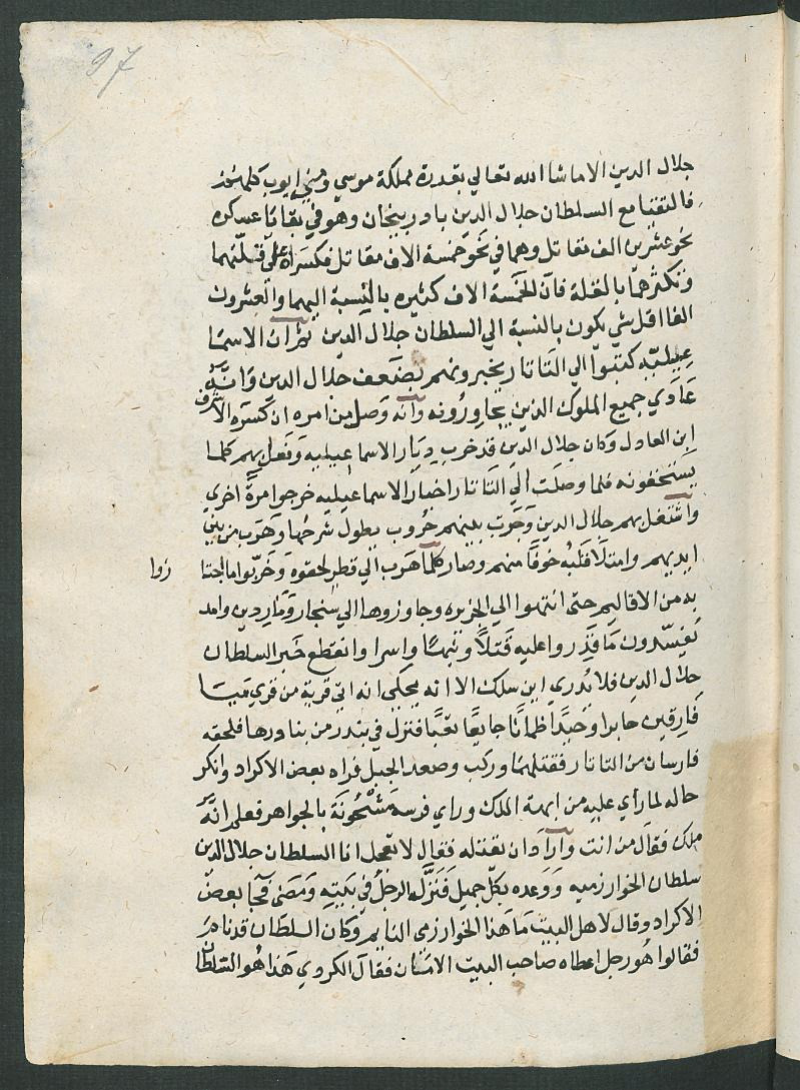 97
جلال الدين الا ماشا الله تعالي بقدرة مملكة موسي وبني ايوب كلهم
فالتقيا مع السلطان جلال الدين باذربيجان وهو في بقايا عسكره
نحو عشرين الف مقاتل وهما في نحو خمسة الاف مقاتل فكسراه علي قلتهما
وتكثرهما بالغلة فان الخمسة الاف كثيره بالنسبة اليهما والعشرون
الفا اقل شي يكون بالنسبة الي السلطان جلال الدين ثم ان الاسما
عيليه كتبوا الي التاتار يخبرونهم بضعف جلال الدين وانه
عادي جميع الملوك الذين يجاورونه وانه وصل من امره ان كسره الاشرف
ابن العادل وكان جلال الدين قد خرب ديار الاسماعيليه وفعل بهم كلما
يستحقونه فلما وصلت الي التاتار اخبار الاسماعيليه خرجوا مرة اخري
واشتغل بهم جلال الدين وجرت بينهم حروب يطول شرحها وهرب من بين
ايديهم وامتلا قلبه خوفا منهم وصار كلما هرب الي قطر لحقوه وخربوا ما اجتا
زوا
به من الاقاليم حتى انتهوا الي الجزيره وجاوزوها الي سنجار وماردين وامد
يفسدون ما قدروا عليه قتلا ونهبا واسرا وانقطع خبر السلطان
جلال الدين فلا يدري اين سلك الا انه يحكي انه اتي قرية من قري ميا
فارقين حايرا وحيدا ظمانا جايعا تعبا فنزل في بندر من بنادرها فلحقه
فارسان من التاتار فقتلهما وركب وصعد الجبل فراه بعض الاكراد وانكر
حاله لما راي عليه من ابهة الملك وراي فرسه مشحونة بالجواهر فعلم انه
ملك فقال من انت واراد ان يقتله فقال لا تعجل انا السلطان جلال الدين
سلطان الخوارزميه ووعده بكل جميل فنزله الرجل في بيته ومضى فجا بعض
الاكراد وقال لاهل البيت ما هذا الخوارزمي النايم وكان السلطان قد نام
فقالوا هو رجل اعطاه صاحب البيت الامان فقال الكردي هذا هو السلطان